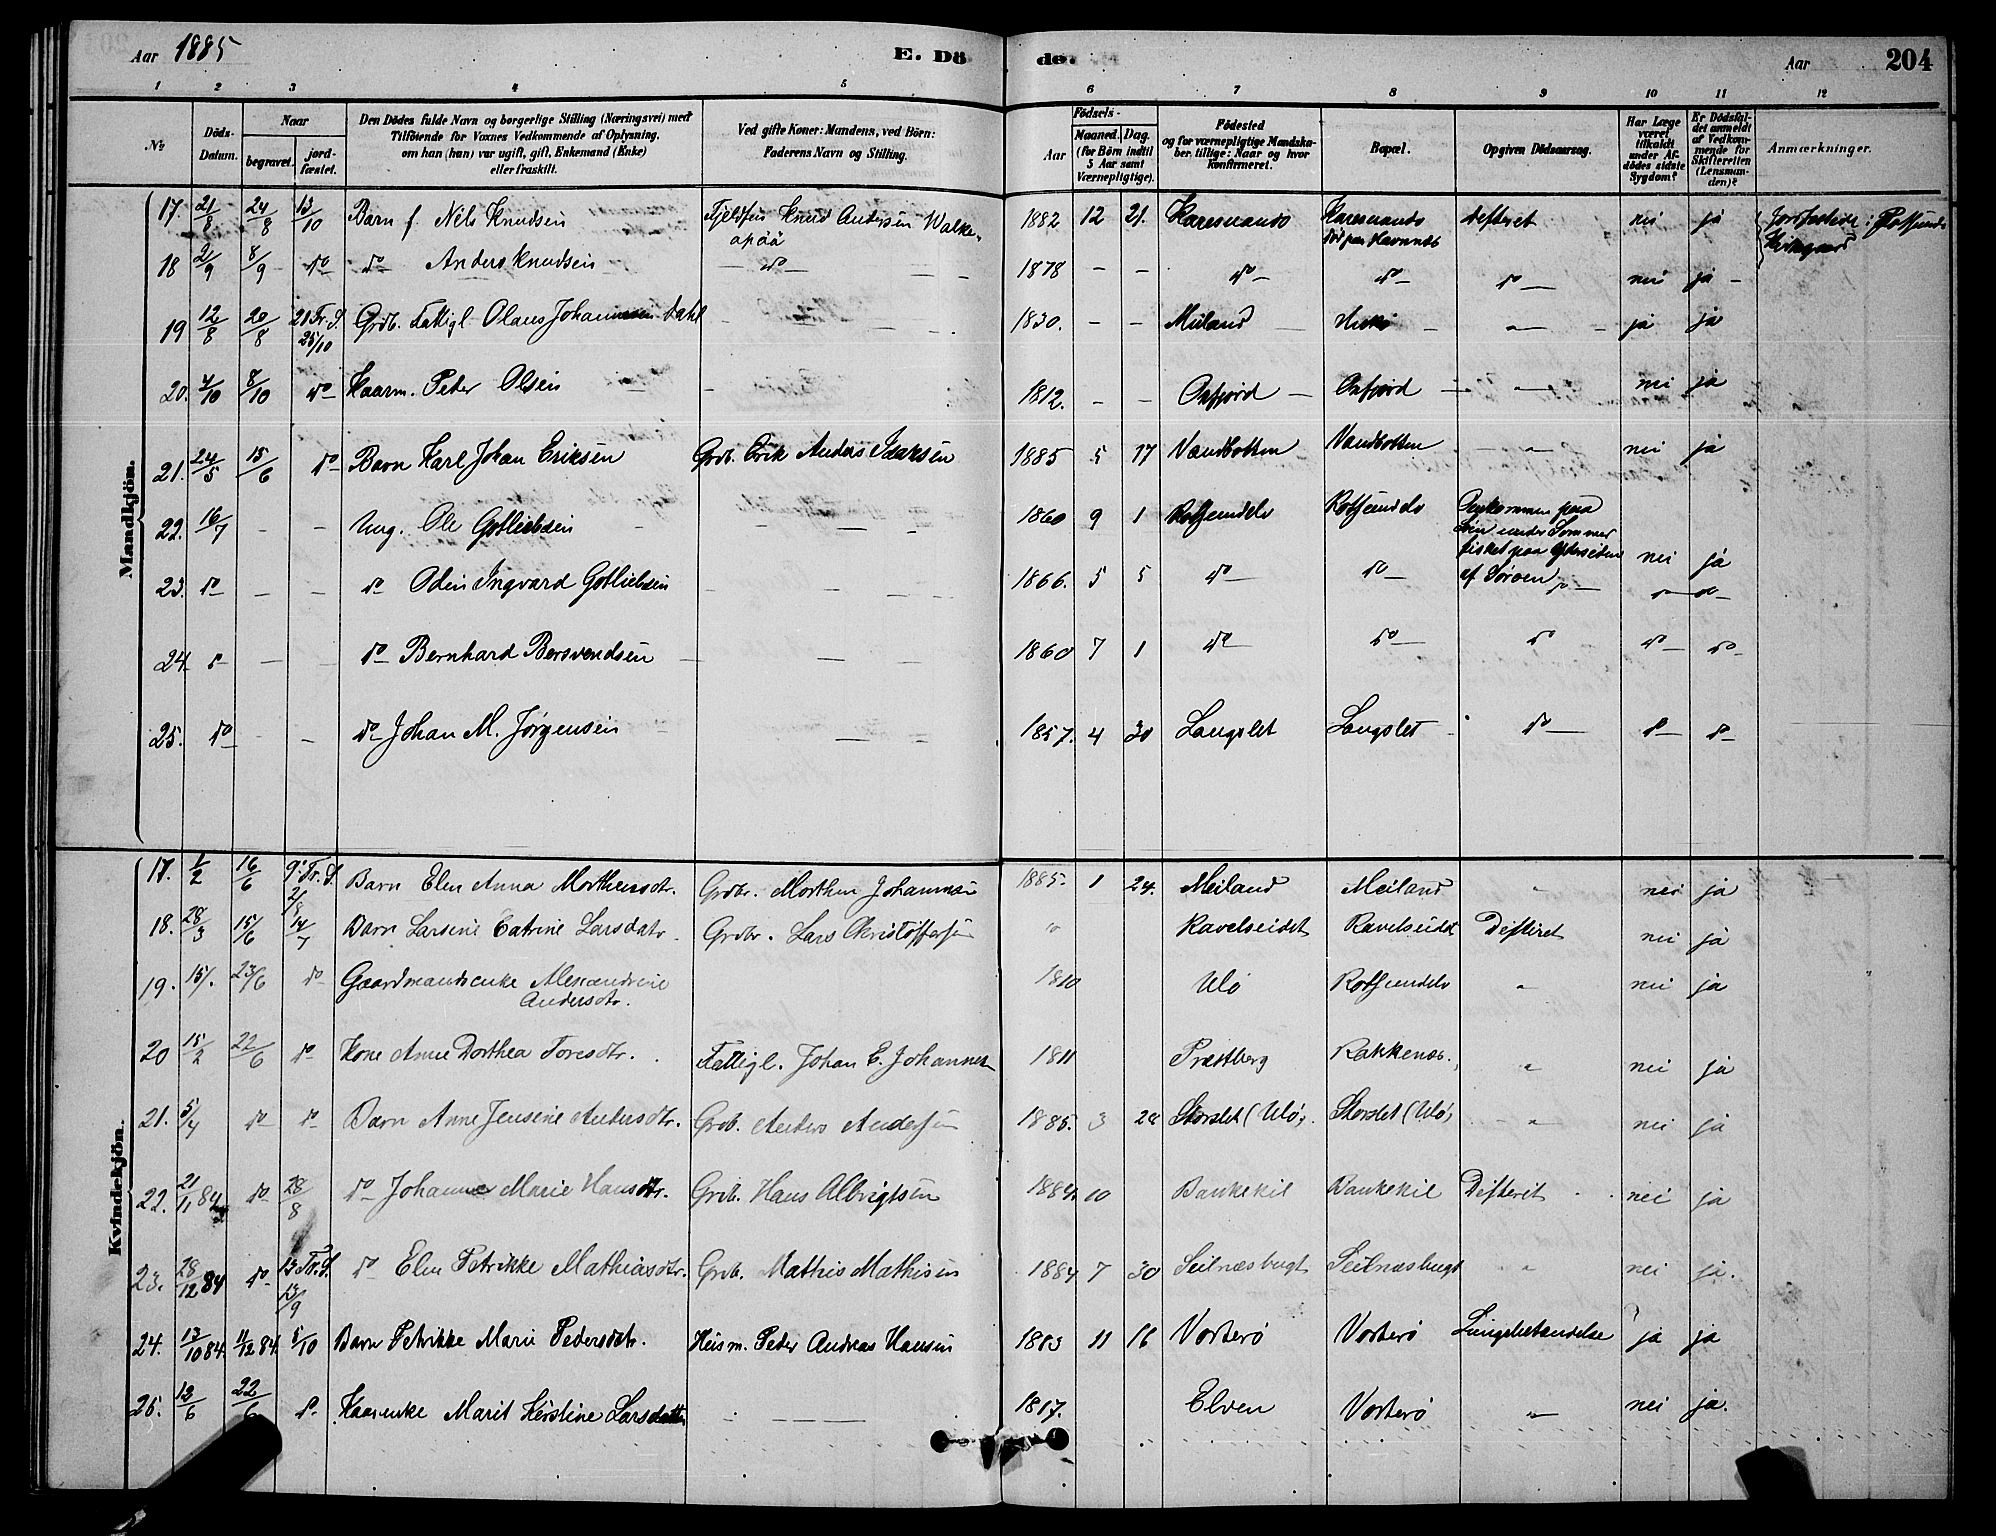 Aar 1885 E. Dö de. Aar 204
1 2 3 4 5 6 7 8 9 10 11 12
№ Döds-Datum. Naar begravet. jord-fæstet. Den Dödes fulde Navn og borgerlige Stilling (Næringsvei) med Tilföiende for Voxnes Vedkommende af Oplysning, om han (hun) var ugift, gift, Enkemand (Enke) eller fraskilt. Ved gifte Koner: Mandens, ved Börn: Faderens Navn og Stilling. Födsels- Aar Maaned. Dag. (for Börn indtil 5 Aar samt Værnepligtige). Födested og for værnepligtige Mandskaber tillige: Naar og hvor konfirmeret. Bopæl. Opgiven Dödsaarsag. Har Læge været tilkaldt under Afdödes sidste Sygdom? Er Dödsfaldet anmeldt af Vedkommende for Skifteretten (Lensmanden)? Anmærkninger.
Mandkjön.
17. 21/8 24/8 13/10 Barn f. Nils Knudsen Fjeldfin Knud Andersen Walkeapää 1882 12 21. Karesuando Karesuando død paa Havnnæs Difteret nei ja Jordfæstede i Rotsunds Kirkegaard
18 2/9 8/9 do do Anders Knudsen do 1878 – – do do do nei ja
19 12/8 20/8 21 Tr. S. 25/10 Grdb. Fattigl. Olaus Johannesen Dahl 1830. – – Meiland ja ja
20. 4/10 8/10 do Kaarm. Peter Olsen 1812. – – Oxfjord Oxfjord nei ja
21. 24/5 15/6 do Barn Karl Johan Eriksen Grdb. Erik Anders Isaksen 1885 5 17 Vandbotten Vandbotten nei ja
22. 16/7 – – Ung. Ole Gotliebsen 1860 9 1 Rotsundelv Rotsundelv Omkommen paa Søen under Sommer fisket paa Ydersiden af Sørøen nei ja
23. do – – do Odin Ingvard Gotliebsen 1866. 5 5 do do do do do
24. do – – do Bernhard Bersvendsen 1860 7 1 do do do do do
25. do – – do Johan M. Jørgensen 1857. 4 30 Langslet Langslet do do do
Kvindekjön.
17. 1/2 16/6 9. Tr. S. 2/8 Barn Elen Anna Morthensdtr. Grdbr. Morthen Johannesen 1885. 1 24. Meiland Meiland " nei ja
18. 28/3 15/6 14/7 Barn Larsine Catrine Larsdatr. Grdbr. Lars Christoffersen " Ravelseidet Ravelseidet Difteret nei ja
19. 15/. 23/6 do Gaardmandsenke Alexandrine Andersdtr. 1810 Ulö Rotsundelv " nei ja
20 15/2 22/6 do Kone Anne Dorthea Toresdtr. Fattigl. Johan E. Johannes 1811 Præstberg Rakkenæs. " nei ja
21. 5/4 do do Barn Anne Jensine Andersdtr. Grdb. Anders Andersen 1885. 3 28 Storslet (Ulö) Storslet (Ulö) " nei ja
22. 21/11 84 do 28/8 do Johanne Marie Hansdtr. Grdb. Hans Albrigtsen 1884. 10 Bankekil Bankekil Difterit nei ja
23. 28/12 84 do 13 Tr. S. 13/9 do Elen Petrikke Mathiasdtr. Grdb. Mathis Mathisen 1884 7 30 Seilnæsbugt Seilnæsbugt " nei ja.
24. 13/10 84. 11/12 84. 5/10 Barn Petrikke Marie Pedersdtr. Husm. Peder Andreas Hansen 1883 11 16 Vorterö Vorterö Lungebetændelse ja ja
25. 12/6 22/6 do Kaarenke Marit Kirstine Larsdatter 1817. Elven Vorterö " nei ja.